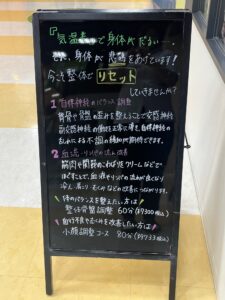 『気温差で身体がだるい・・
それ、身体が悲鳴をあげています!
今こそ整体でリセット
していきませんか?
1 自律神経のバランス調整
背骨や骨盤の歪みを整えることで交感神経
副交感神経の働きを正常に導き、自律神経の
乱れによる不調の緩和が期待できます。
2 血流・リンパの流れ改善
筋肉や関節のこわばりをクリームなどで
ほぐすことで、血液やリンパの流れが良くなり
冷え・肩こり・むくみなどの改善につながります。
体のバランスを整えたい方は
整体骨盤調整 60分(¥7300税込)
血行不良やむくみを改善したい方は
小顔調整コース 80分(¥9733税込)